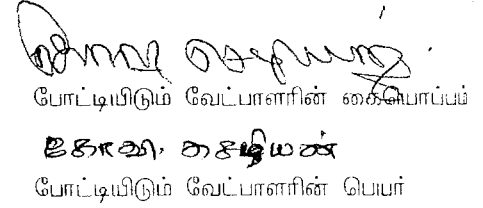 கோவி. செழியன்
போட்டியிடும் வேட்பாளரின் கையொப்பம்
கோவி. செழியன்
போட்டியிடும் வேட்பாளரின் பெயர்